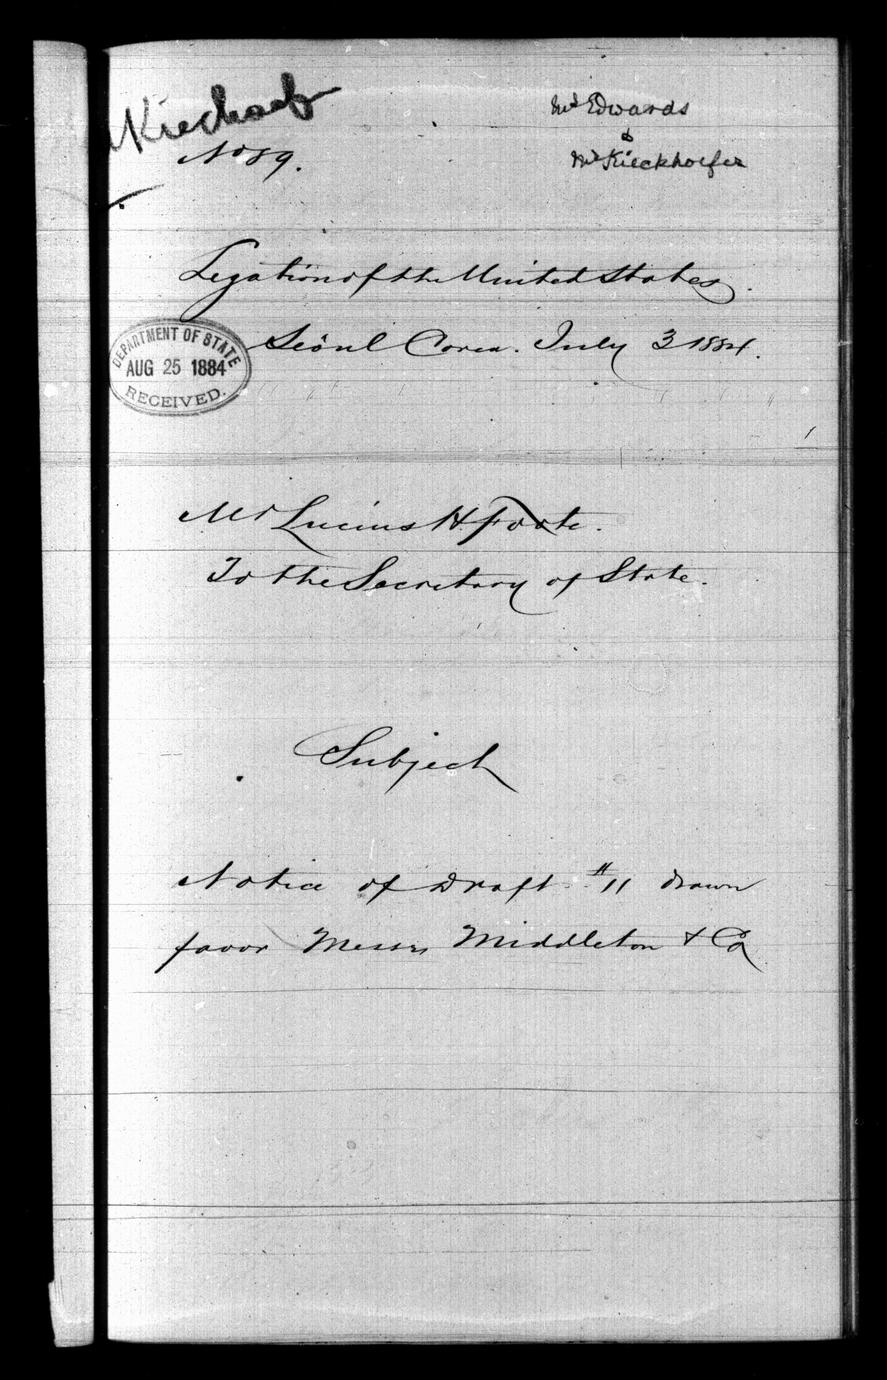 Kieckhoef
Mr Edwards
&
Mr Kieckhoefer
No 89.
Legation of the United States.
Seoul Corea. July 3 1884.
DEPARTMENT OF STATE
AUG 25 1884
RECEIVED.
Mr Lucius H Foote.
To the Secretary of State.
Subject
Notice of Draft #11 drawn
favor Messrs Middleton & Co